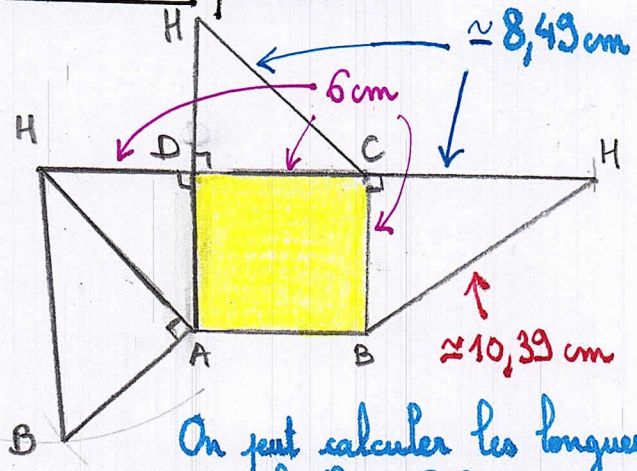 H
≃ 8,49 cm
6 cm
H
D
C
H
A
B
≃ 10,39 cm
B
On peut calculer les longueu